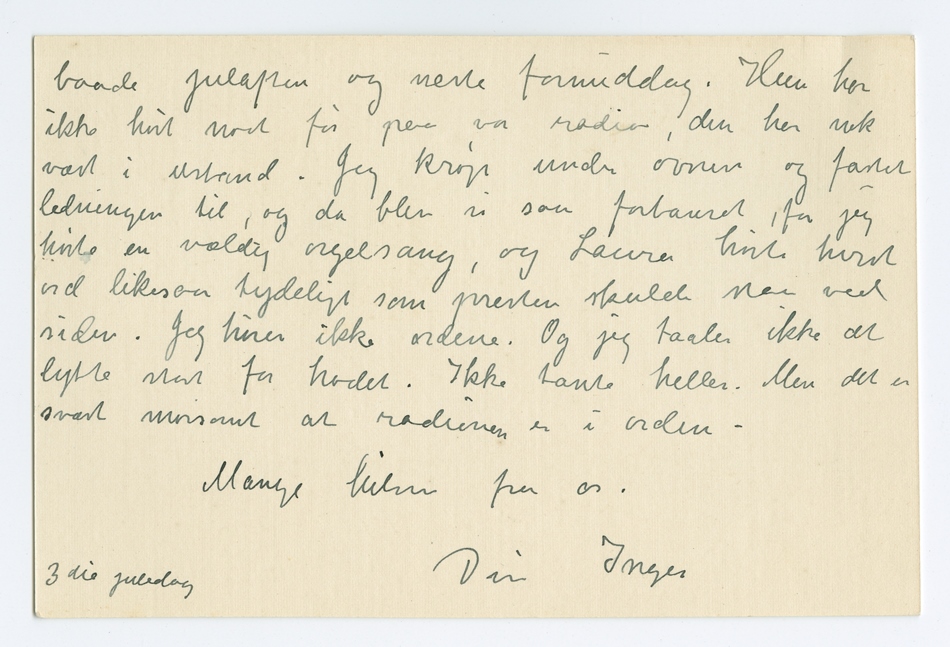 baade julaften og neste formiddag. Hun har
ikke hørt noet før paa vor radio, den har nok
vært i ustand. Jeg krøp under ovnen og fæstet
ledningen til, og da blev vi saa forbauset, for jeg
hørte en vældig orgelsang, og Laura hørte hvert
ord likesaa tydeligt som presten skulde staa ved
siden. Jeg hører ikke ordene. Og jeg taaler ikke at
lytte stort for hodet. Ikke tante heller. Men det er
svært morsomt at radioen er i orden -
Mange hilsner fra os.
Din Inger
3die juledag